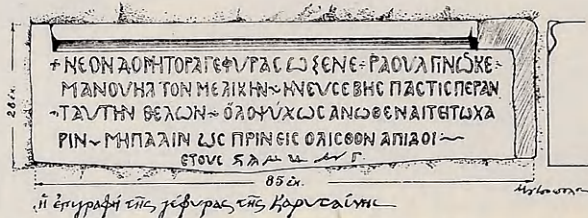 + ΝΕΟΝ ΔΟΜΗΤΟΡΑ ΓΕΦΥΡΑC Ѡ ΞΕΝΕ ÷ ΡΑΟΥΛ ΓΙΝѠCΚΕ ÷
ΜΑΝΟΥΗΛ ΤΟΝ ΜΕΛΙΚΗΝ ~ ΗΝ ΕΥCΕΒΗC ΠΑC ΤΙC ΠΕΡΑΝ
÷ ΤΑΥΤΗΝ ΘΕΛΩΝ ~ ΟΛΟΨΥΧΩC ΑΝΩΘΕΝ ΑΙΤΕΙΤΩ ΧΑ
ΡΙΝ ~ ΜΗ ΠΑΛΙΝ ѠC ΠΡΙΝ ΕΙC ΟΛΙCΘΟΝ ΑΠΙΔΟΙ ~
ΕΤΟΥC
85 ἑκ.
ἡ ἐπιγραφή τῆς γέφυρας τῆς Καρυταίνης